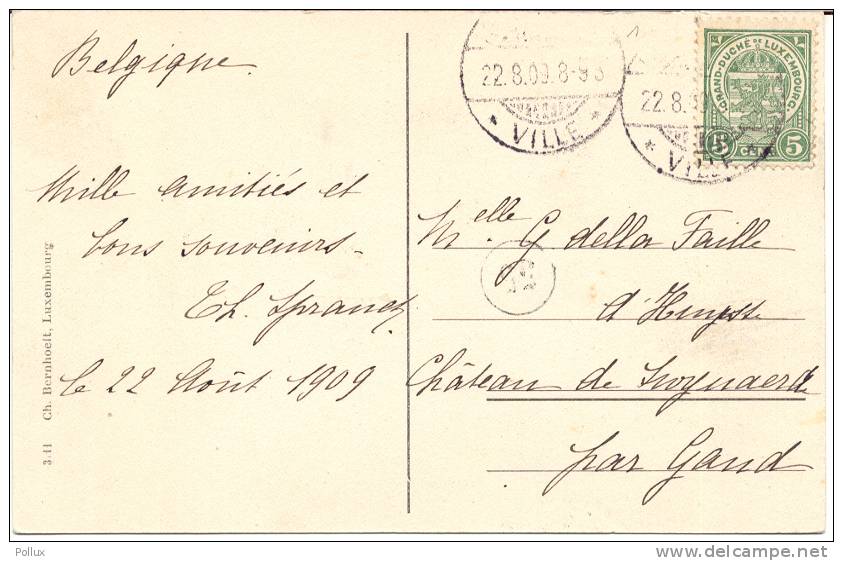 Belgique
Mille amitiés et
bons souvenirs -
le 22 Août 1909
3.11 Ch. Bernhoeft, Luxembourg
22.8.09.8-9
* VILLE *
22.8.
* VILLE *
GRAND-DUCHÉ DE LUXEMBOURG
5 CENT 5
Melle G della Faille
d'Huysse
Château de
par Gand
Pollux
www.delcampe.net